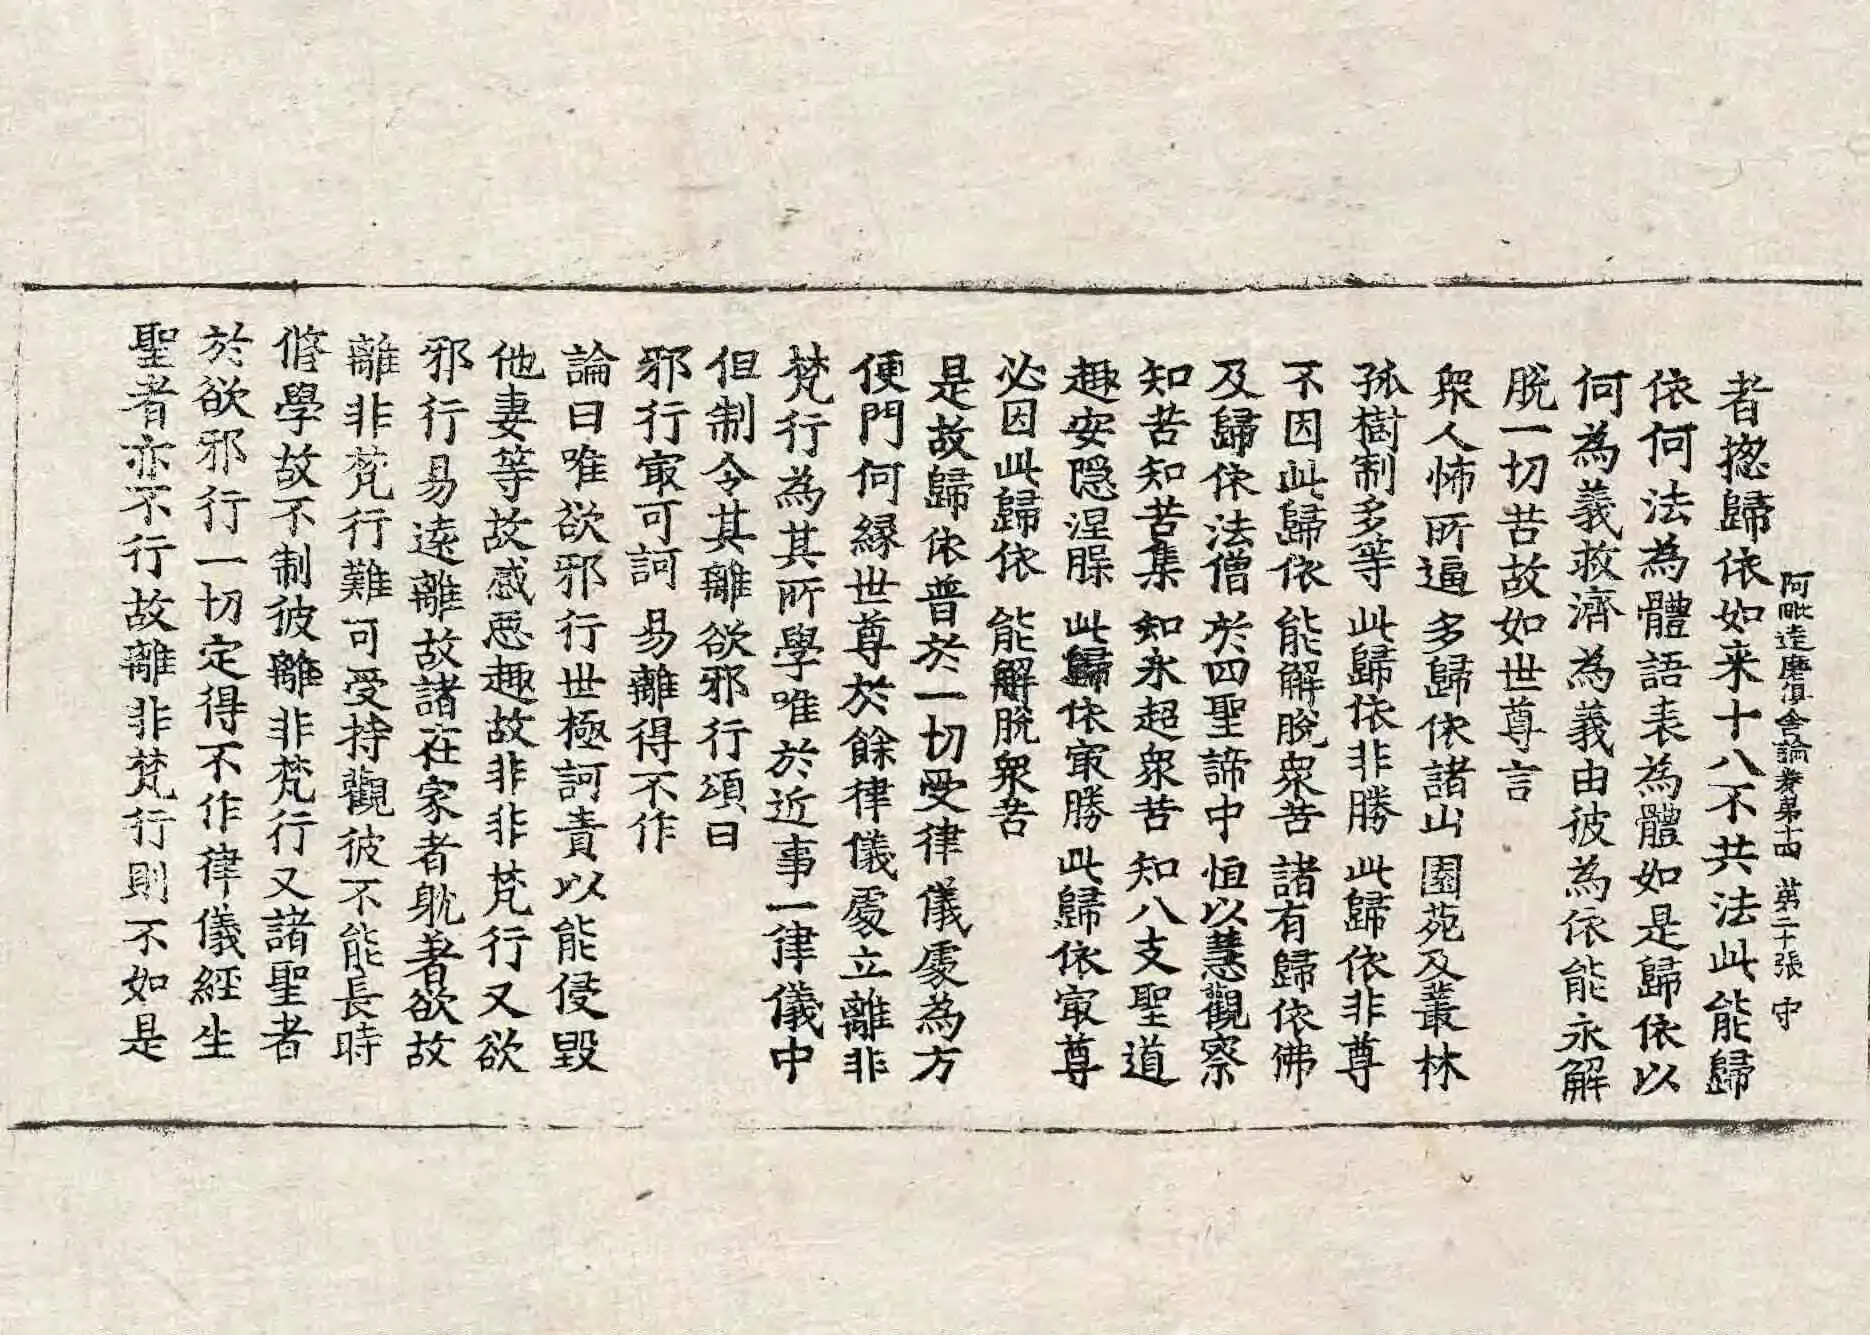 阿毗達磨俱舍論卷第十四 苐二十張 守
者揔歸依如来十八不共法此能歸
依何法為體語表為體如是歸依以
何為義救濟為義由彼為依能永解
脫一切苦故如世尊言
衆人怖所逼 多歸依諸山 園苑及叢林
孤樹制多等 此歸依非勝 此歸依非尊
不因此歸依 能解脫衆苦 諸有歸依佛
及歸依法僧 於四聖諦中 恒以慧觀察
知苦知苦集 知永超衆苦 知八支聖道
趣安隱涅槃 此歸依㝡勝 此歸依㝡尊
必因此歸依 能解脫衆苦
是故歸依普於一切受律儀處為方
便門何緣世尊於餘律儀處立離非
梵行為其所學唯於近事一律儀中
但制令其離欲邪行頌曰
邪行㝡可訶 易離得不作
論曰唯欲邪行世極訶責以能侵毀
他妻等故感惡趣故非非梵行又欲
邪行易遠離故諸在家者躭著欲故
離非梵行難可受持觀彼不能長時
修學故不制彼離非梵行又諸聖者
於欲邪行一切定得不作律儀經生
聖者亦不行故離非梵行則不如是